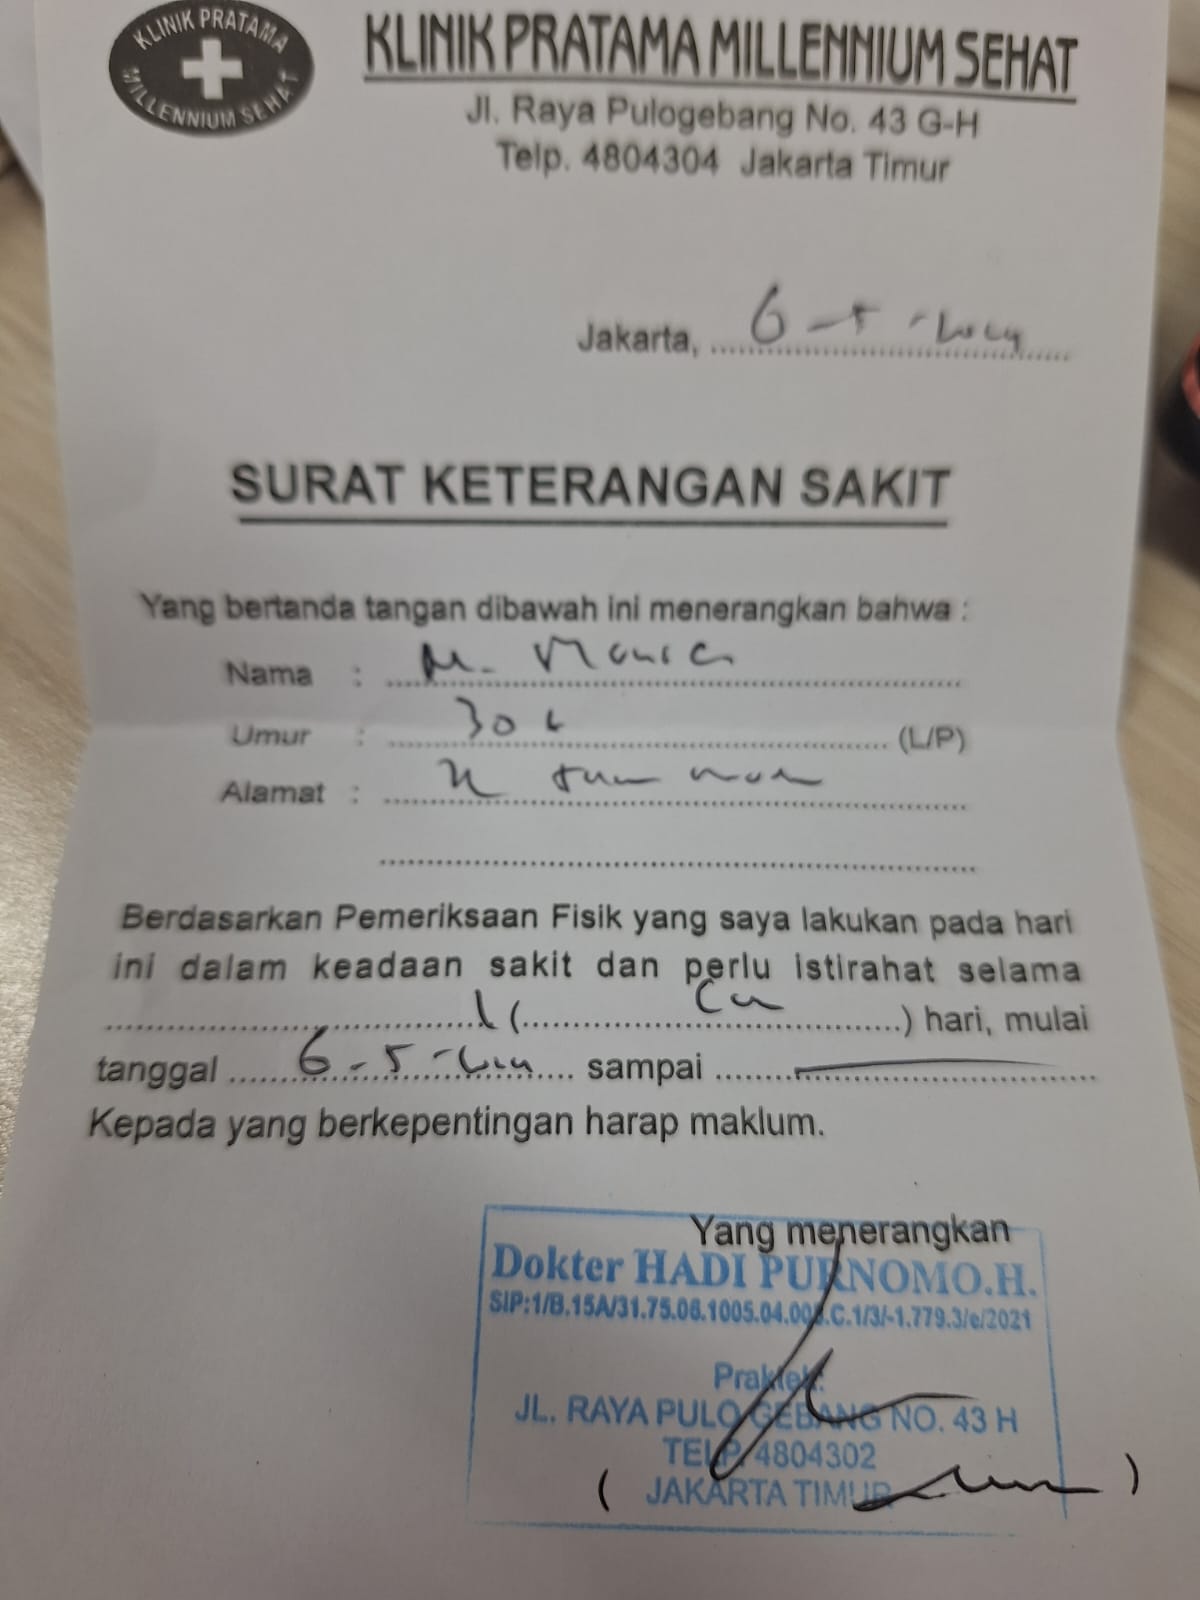 KLINIK PRATAMA
MILLENNIUM SEHAT
KLINIK PRATAMA MILLENNIUM SEHAT
Jl. Raya Pulogebang No. 43 G-H
Telp. 4804304 Jakarta Timur
Jakarta, 6-5-
SURAT KETERANGAN SAKIT
Yang bertanda tangan dibawah ini menerangkan bahwa :
Nama : M.
Umur : 30 (L/P)
Alamat :
Berdasarkan Pemeriksaan Fisik yang saya lakukan pada hari
ini dalam keadaan sakit dan perlu istirahat selama
1 ( ) hari, mulai
tanggal 6-5- sampai
Kepada yang berkepentingan harap maklum.
Yang menerangkan
Dokter HADI PURNOMO.H.
SIP:1/B.15A/31.75.06.1005.04.003.C.1/3/-1.779.3/e/2021
Praktek:
JL. RAYA PULO GEBANG NO. 43 H
TELP. 4804302
( JAKARTA TIMUR )